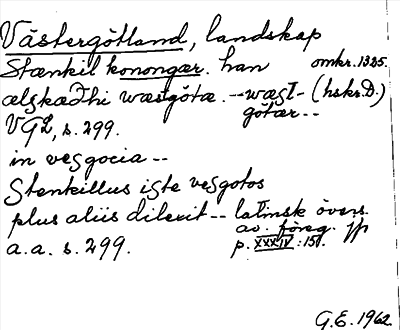 Västergötland, landskap
Stænkil konongær. han omkr. 1325.
ælskædhi wæsgötæ. -- wæsI- (hskr.D.)
götær --
VGL, s. 299.
in vesgocia --
Stenkillus iste vesgotos
plus aliis dilexit -- latinsk övers.
av föreg. jfr
a.a. s. 299. p. XXXIV:15.
G.E. 1962.